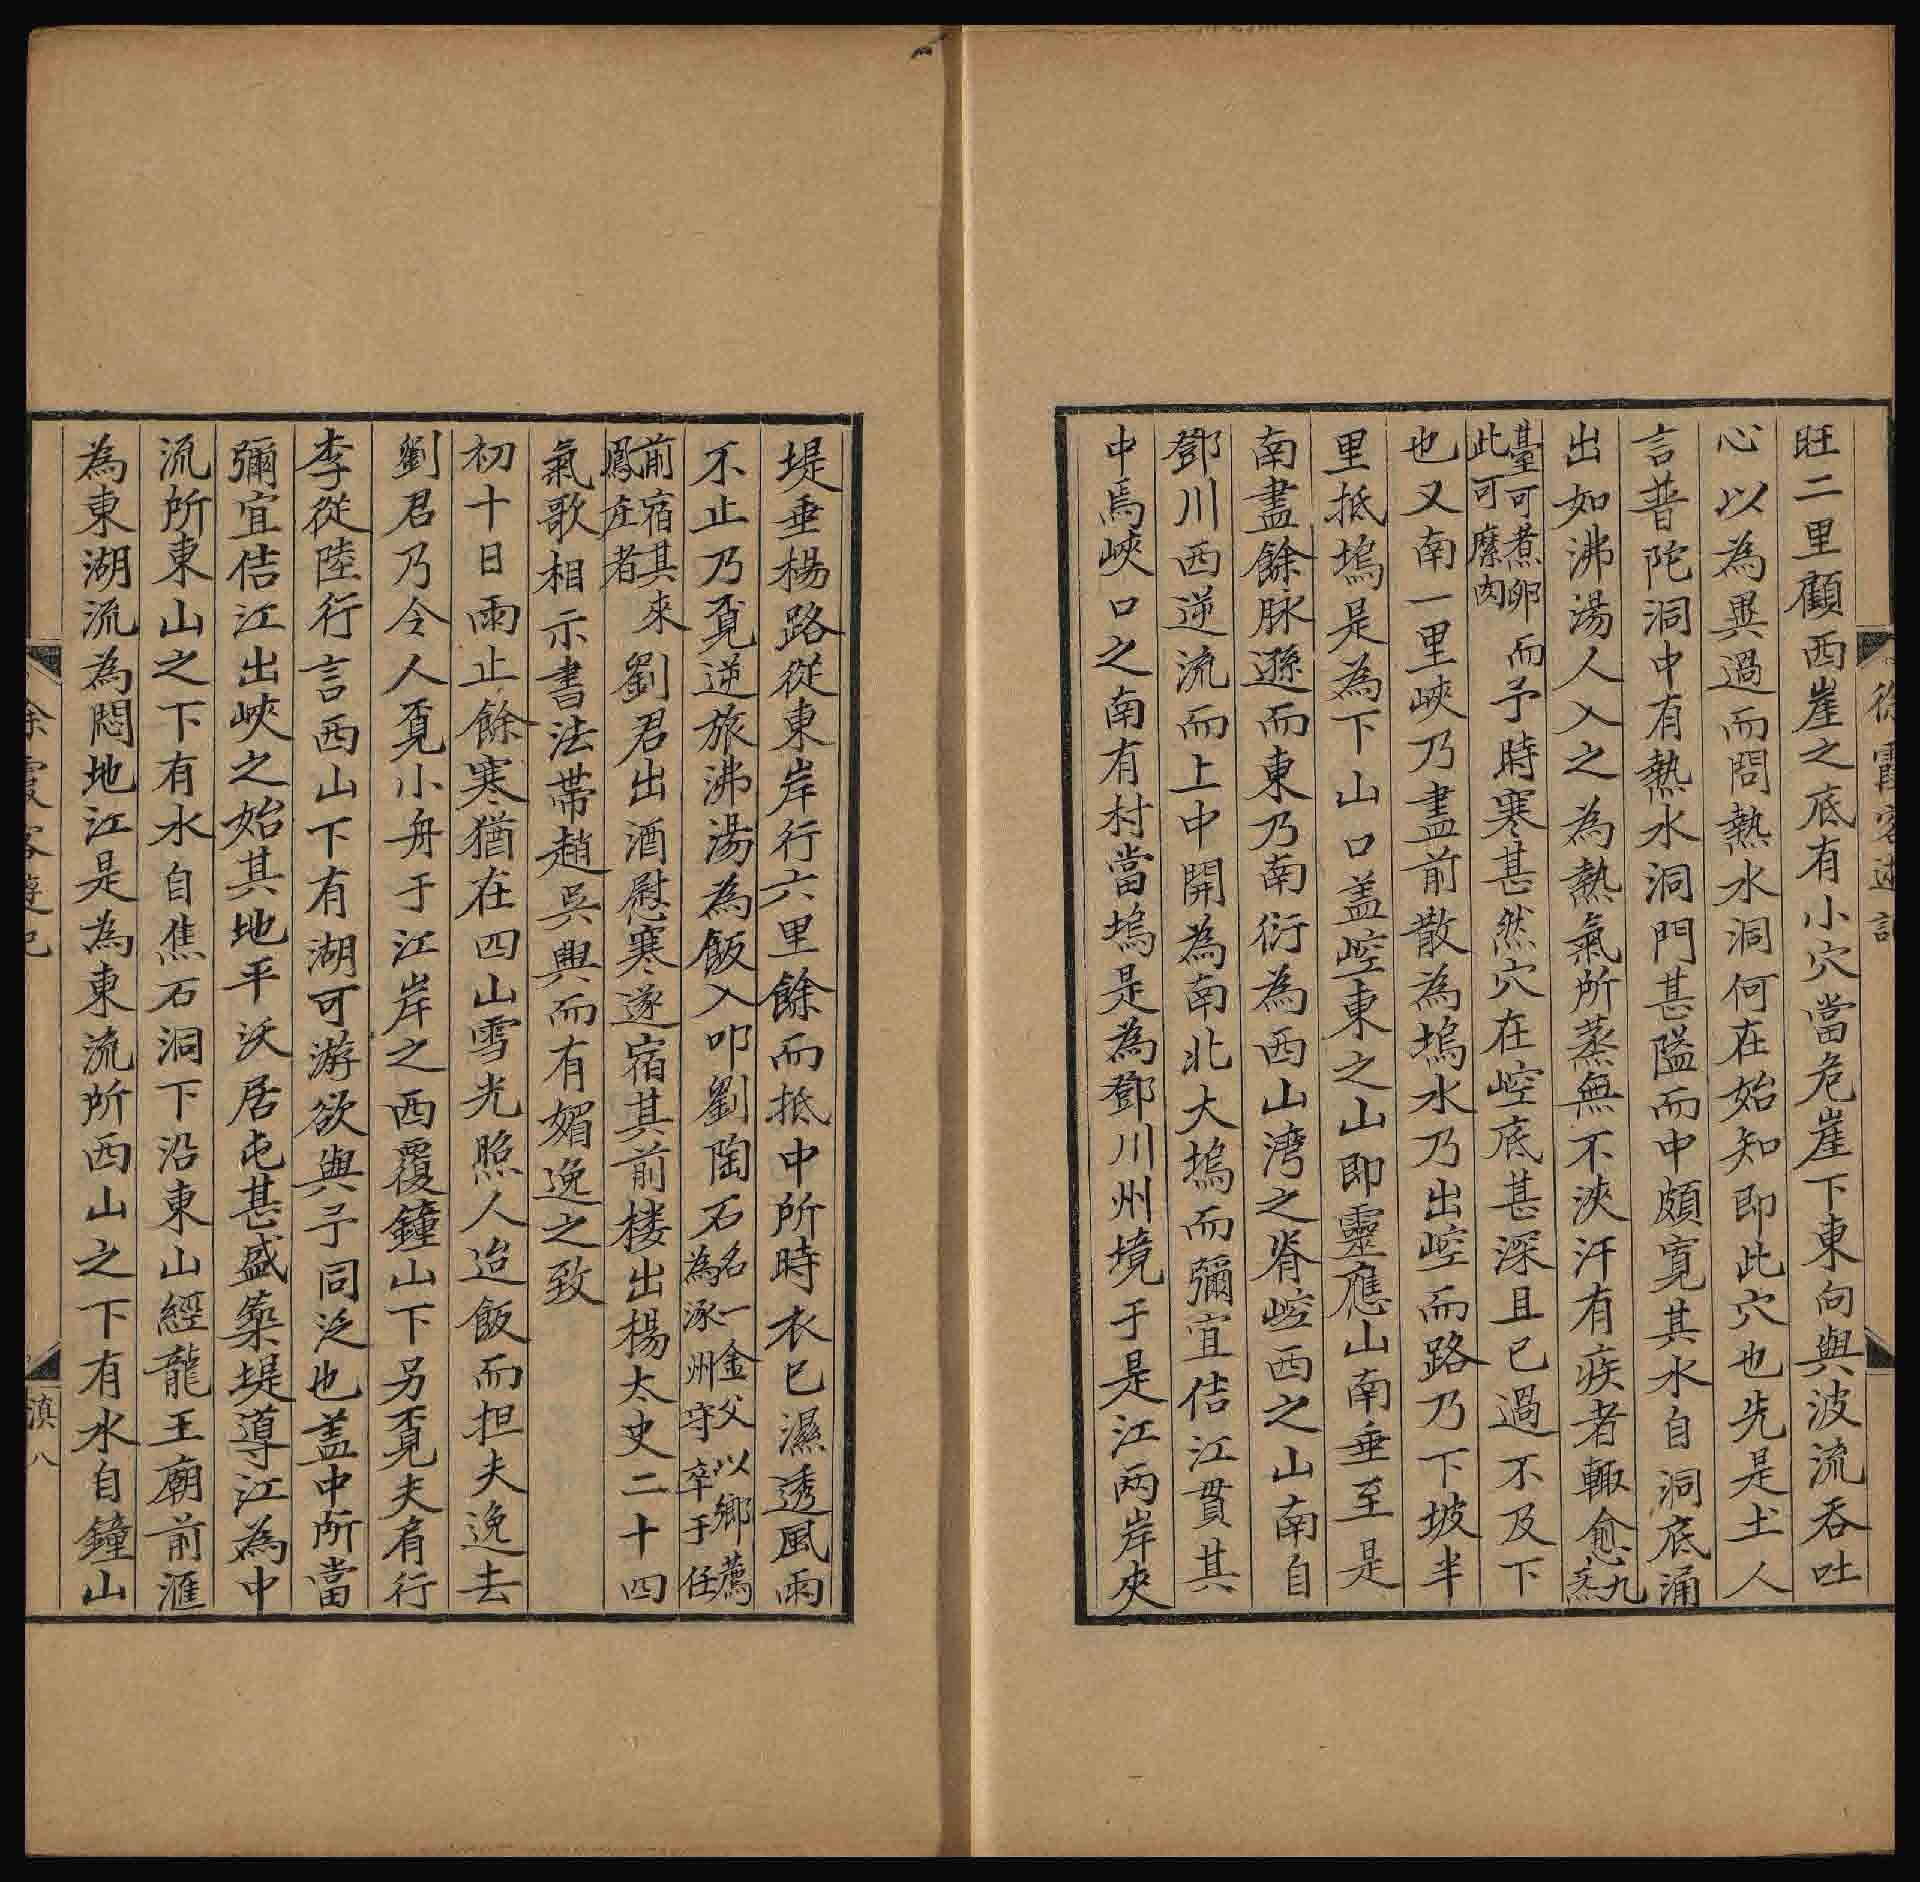 徐霞客遊記
旺二里顧西崖之底有小穴當危崖下東向與波流吞吐
心以為異過而問熱水洞何在始知即此穴也先是土人
言普陀洞中有熱水洞門甚隘而中頗寬其水自洞底涌
出如沸湯人入之為熱氣所蒸無不浹汗有疾者輒愈九
炁
臺可煮卵
此可糜肉
而予時寒甚然穴在崆底甚深且已過不及下
也又南一里峽乃盡前散為塢水乃出崆而路乃下坡半
里抵塢是為下山口盖崆東之山即靈應山南垂至是
南盡餘脉遜而東乃南衍為西山湾之脊崆西之山南自
鄧川西逆流而上中開為南北大塢而彌宜佶江貫其
中焉峽口之南有村當塢是為鄧川州境于是江兩岸夾
堤垂楊路從東岸行六里餘而抵中所時衣已濕透風雨
不止乃覔逆旅沸湯為飯入叩劉陶石
名一金父以鄉薦
為涿州守卒于任
前宿其來
鳳庄者
劉君出酒慰寒遂宿其前楼出楊太史二十四
氣歌相示書法帶趙吳興而有媚逸之致
初十日雨止餘寒猶在四山雪光照人迨飯而担夫逸去
劉君乃令人覔小舟于江岸之西覆鐘山下另覔夫肩行
李從陸行言西山下有湖可游欲與予同泛也盖中所當
彌宜佶江出峽之始其地平沃居屯甚盛築堤導江為中
流所東山之下有水自焦石洞下沿東山經龍王廟前滙
為東湖流為悶地江是為東流所西山之下有水自鐘山
徐霞客遊記
滇八